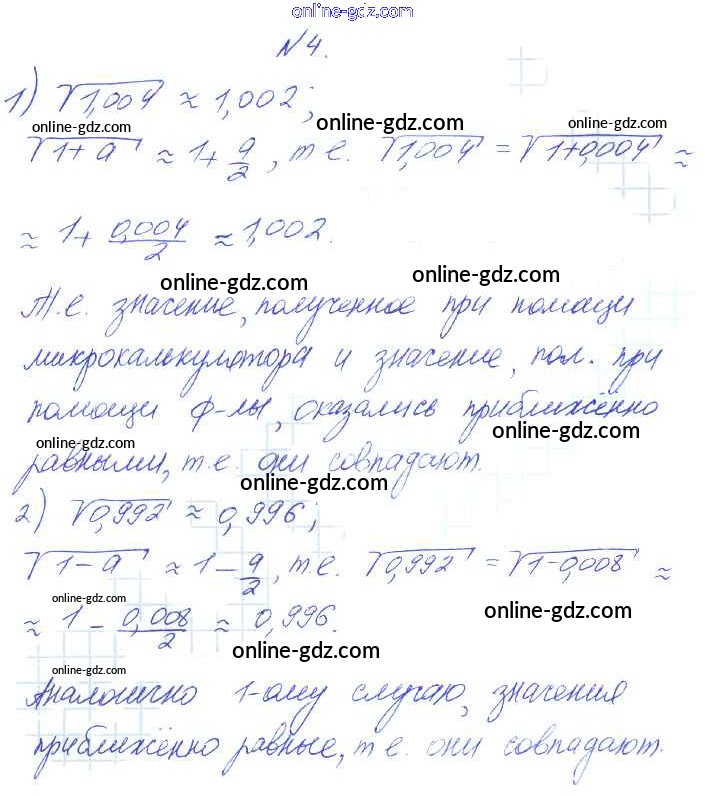 online-gdz.com
№4.
1) √1,004 ≈ 1,002;
online-gdz.com
online-gdz.com
online-gdz.com
√1+a ≈ 1 + a/2, т.е. √1,004 = √1+0,004 ≈
≈ 1 + 0,004/2 ≈ 1,002.
online-gdz.com
online-gdz.com
Т.е. значение, полученное при помощи
микрокалькулятора и значение, пол. при
online-gdz.com
online-gdz.com
помощи ф-лы, оказались приближённо
online-gdz.com
online-gdz.com
равными, т.е. они совпадают.
online-gdz.com
2) √0,992 ≈ 0,996;
√1-a ≈ 1 - a/2, т.е. √0,992 = √1-0,008 ≈
online-gdz.com
online-gdz.com
≈ 1 - 0,008/2 ≈ 0,996.
online-gdz.com
online-gdz.com
Аналогично 1-ому случаю, значения
приближённо равные, т.е. они совпадают.
online-gdz.com
online-gdz.com